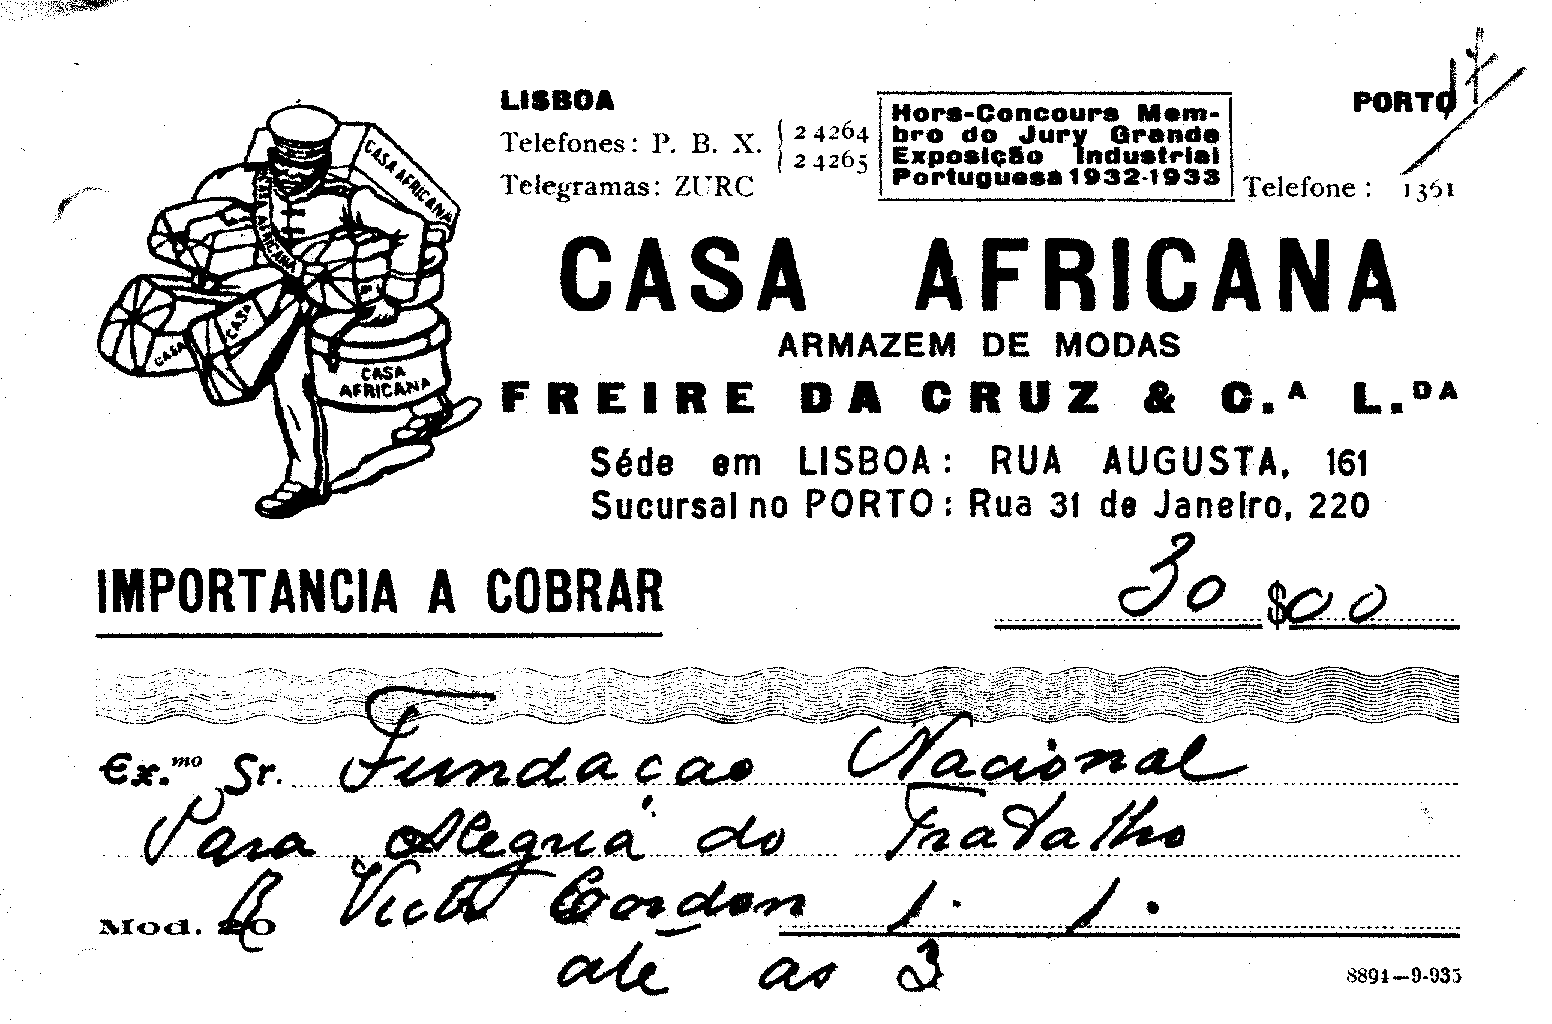 LISBOA
Telefones: P. B. X. { 24264
24265
Telegramas: ZURC
Hors-Concours Mem-
bro do Jury Grande
Exposição Industrial
Portuguesa 1932-1933
PORTO
17
Telefone : 1361
CASA AFRICANA
CASA AFRICANA
CASA
CASA
CASA
AFRICANA
CASA AFRICANA
ARMAZEM DE MODAS
FREIRE DA CRUZ & C.A L.DA
Séde em LISBOA: RUA AUGUSTA, 161
Sucursal no PORTO: Rua 31 de Janeiro, 220
IMPORTANCIA A COBRAR
30 $00
Ex.mo Sr. Fundação Nacional
Para Alegria do Trabalho
R Victor Cordon 1. 1.
Mod. 20
até as 3
8891—9-935